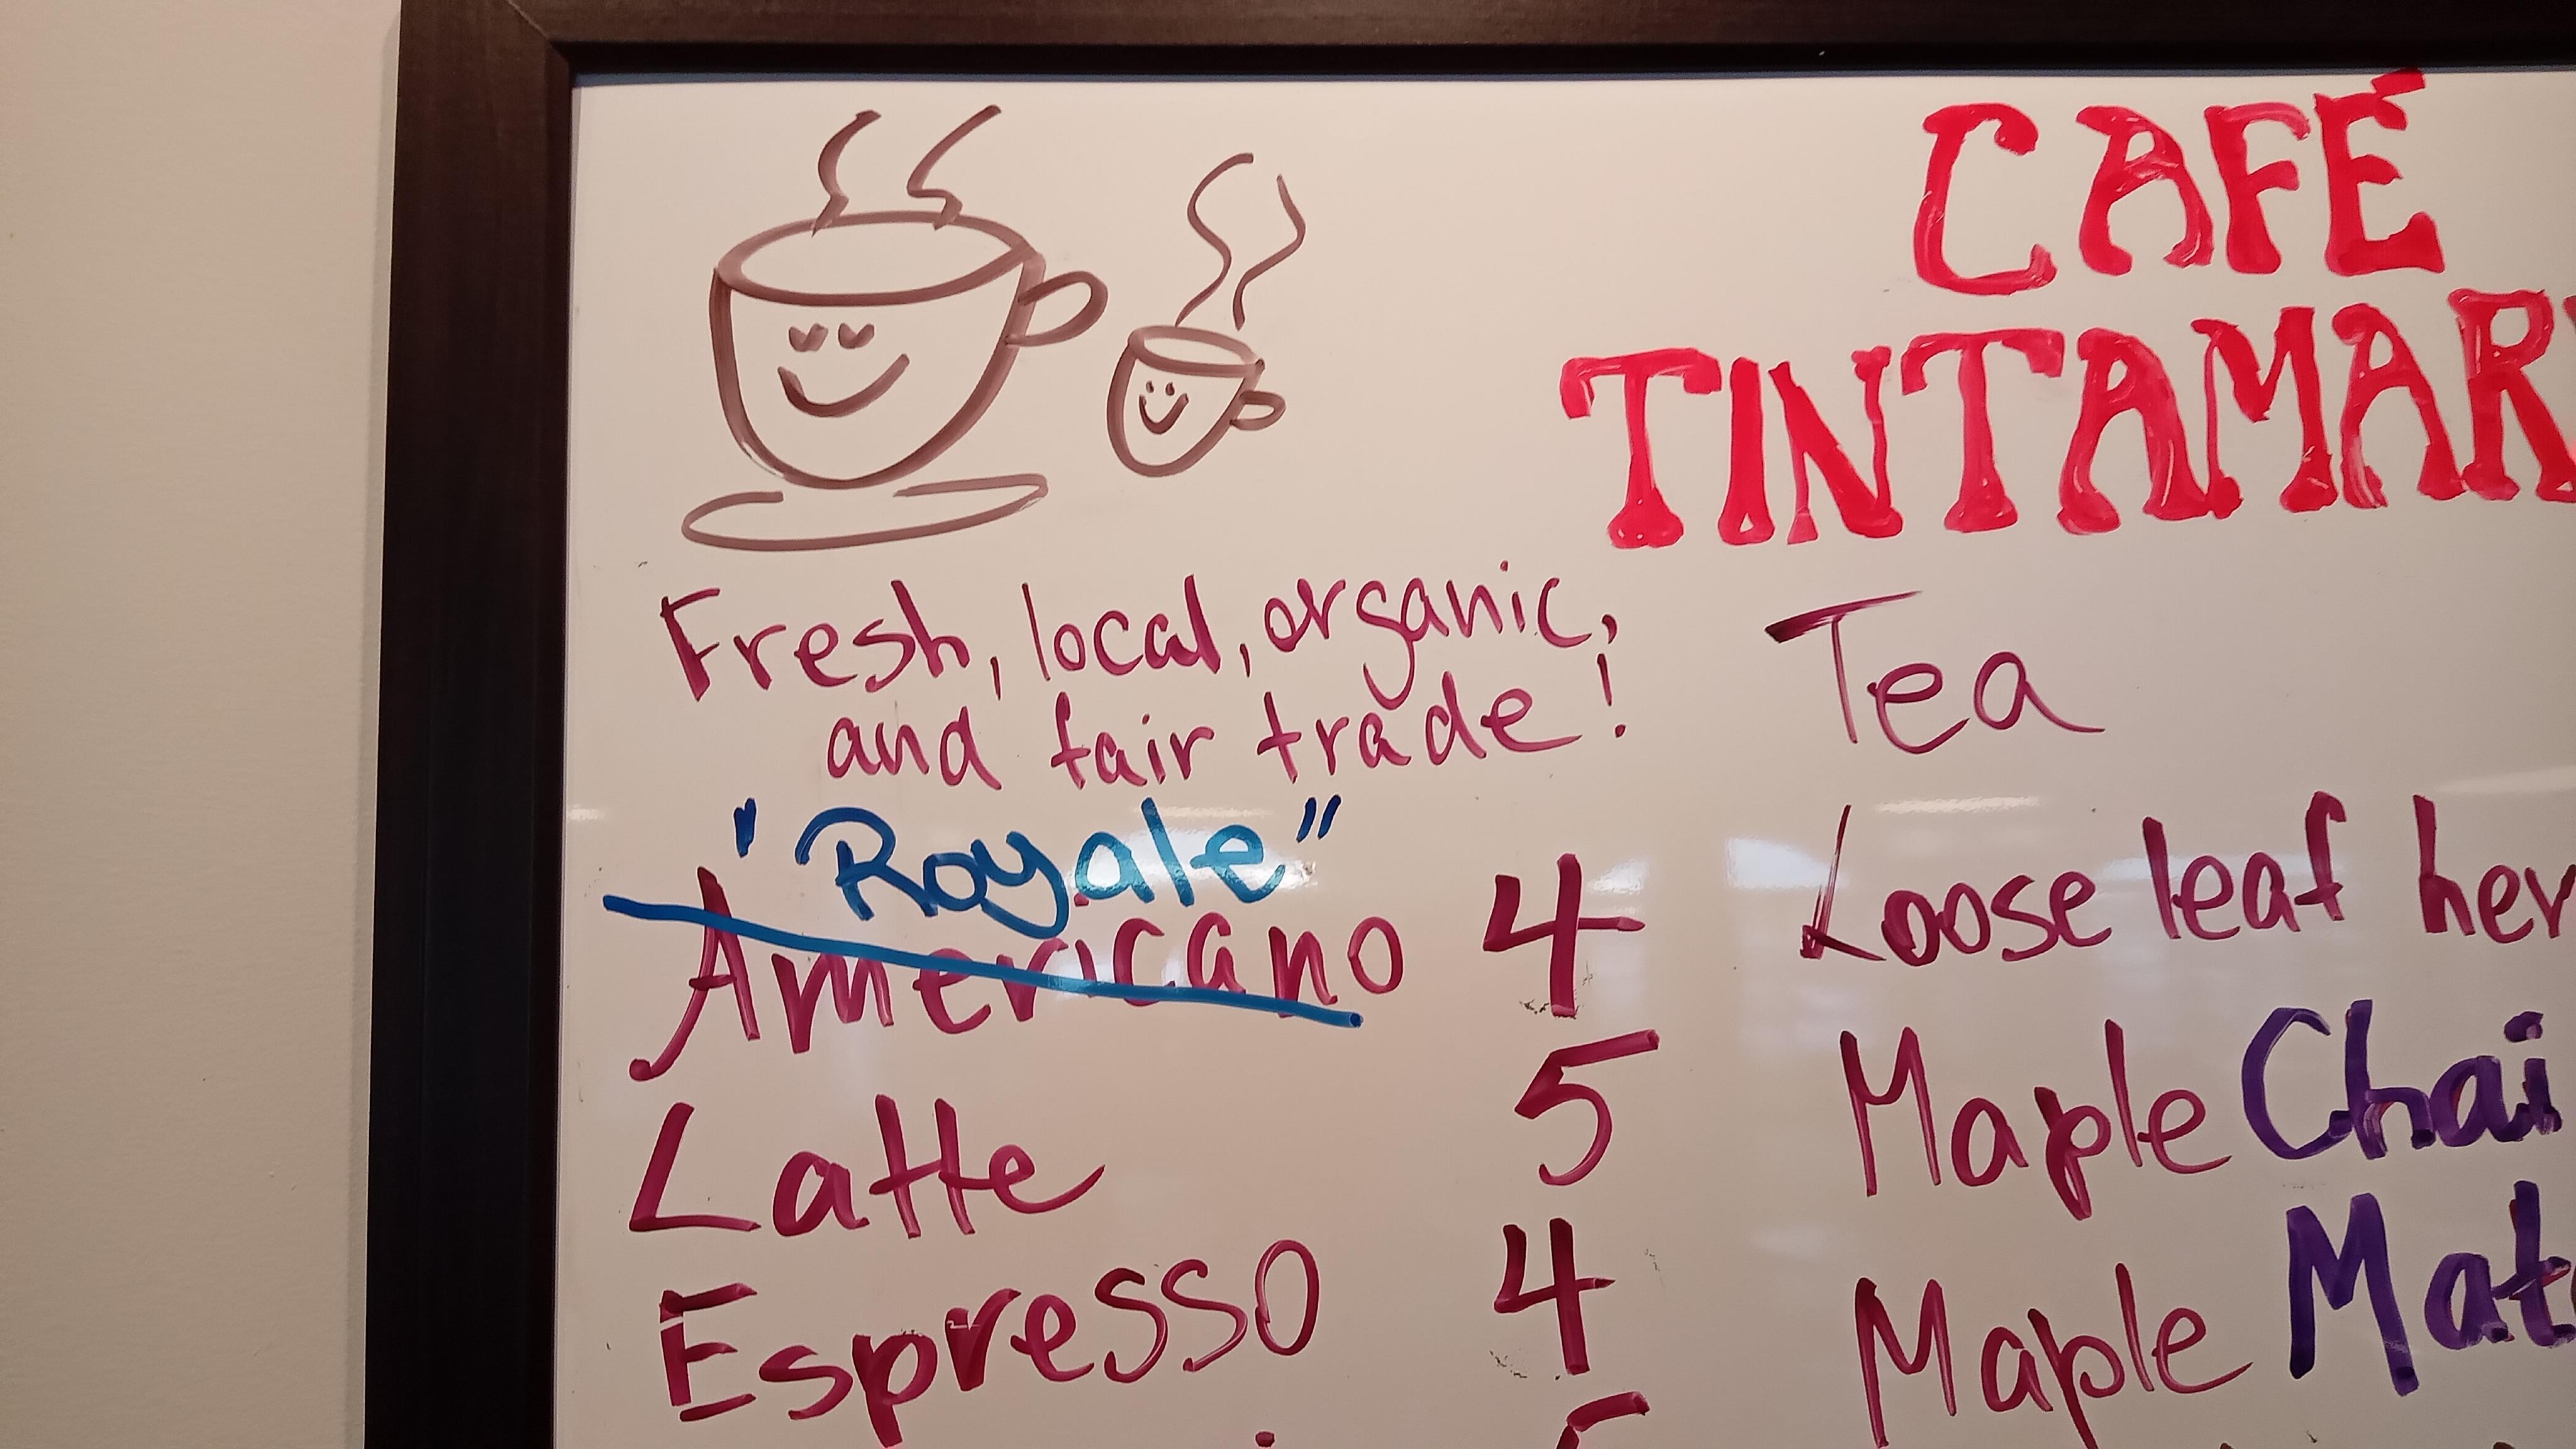 CAFÉ
TINTAMAR
Fresh, local, organic,
and fair trade!
"Royale"
Americano 4
Latte 5
Espresso 4
5
Tea
Loose leaf her
Maple Chai
Maple Mat